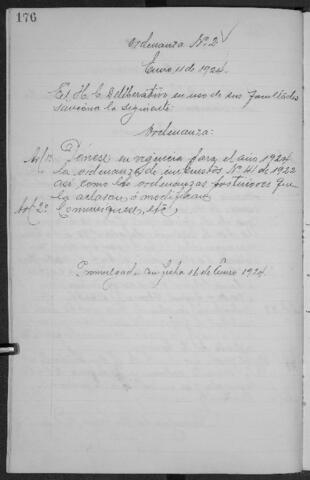 176
Ordenanza Nº 2
Enero 11 de 1924.
El H. C. Deliberativo en uso de sus facultades
sanciona la siguiente:
Ordenanza:
Art 1º Pónese en vigencia para el año 1924
la ordenanza de impuestos Nº 41 de 1922
así como las ordenanzas posteriores que
la aclaran ó modifican
Art. 2º Comuníquese, etc.
Promulgada en fecha 16 de Enero 1924.